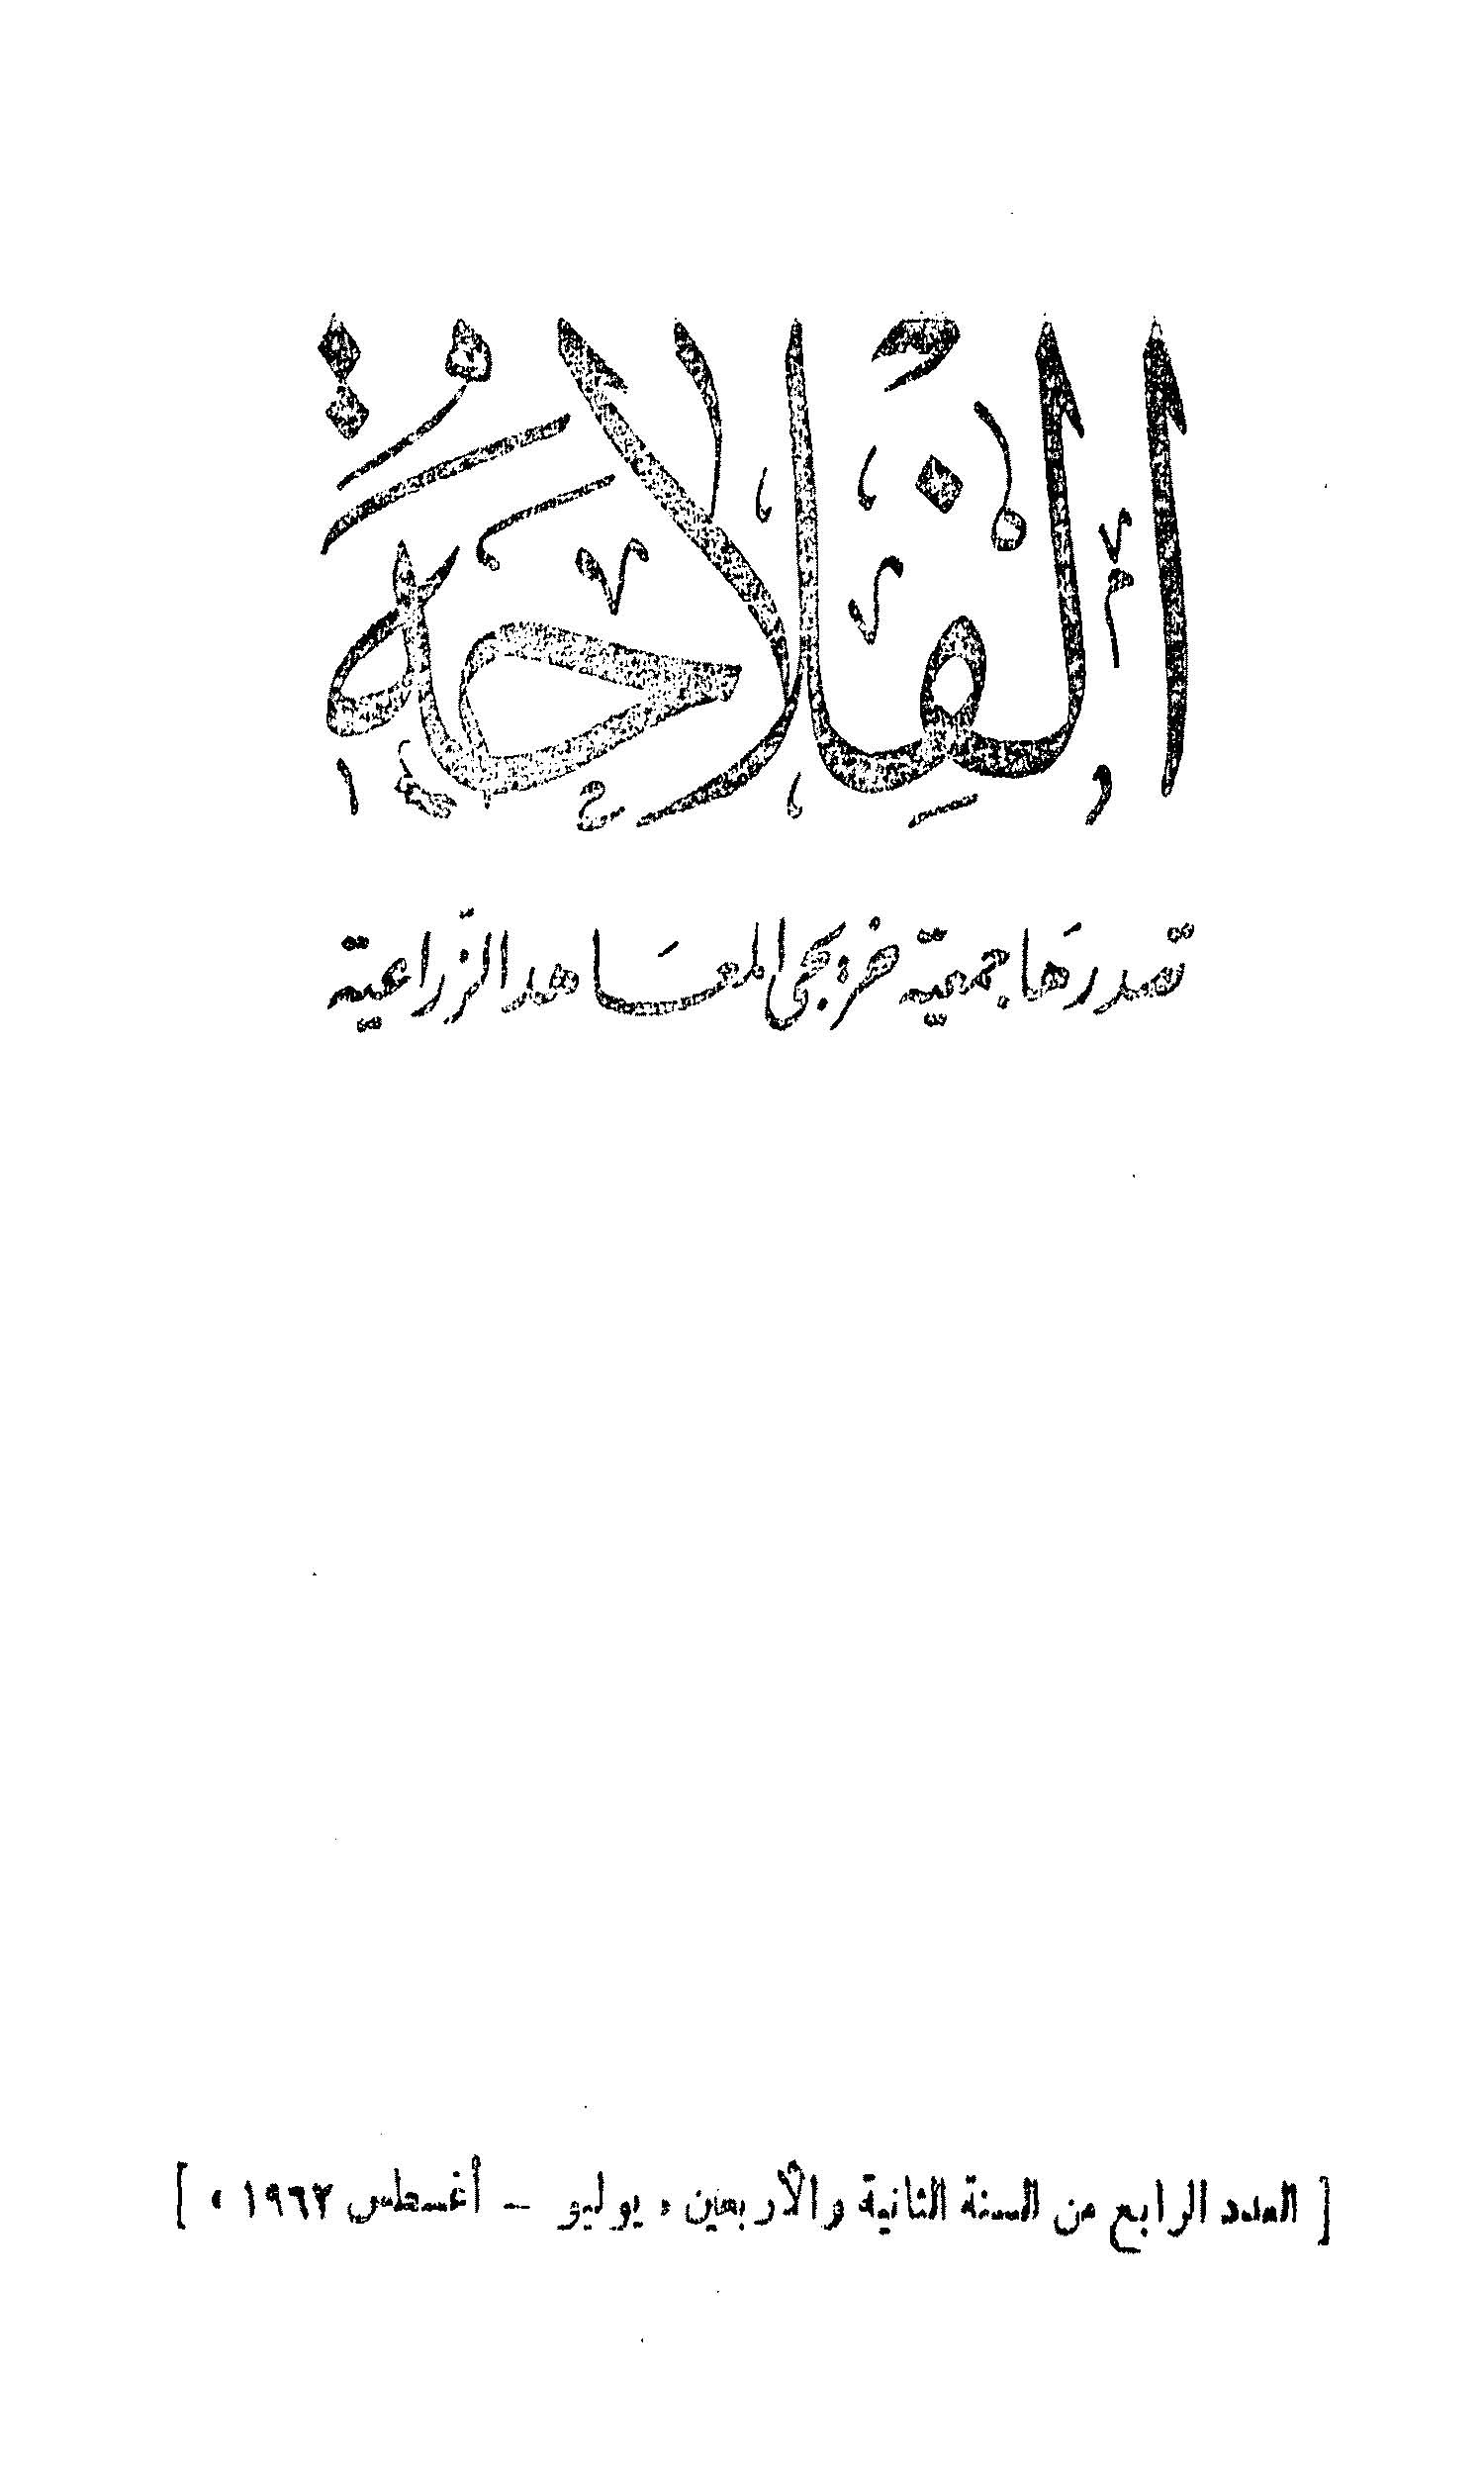 الفلاحة
تصدرها جمعية خريجى المعاهد الزراعية
[ العدد الرابع من السنة الثانية والأربعين « يوليو – أغسطس ١٩٦٢ » ]